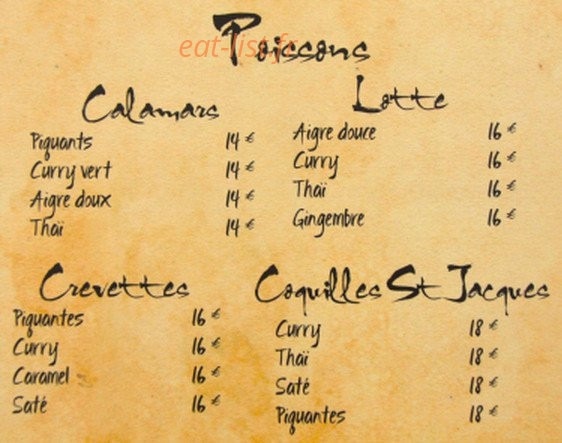 Poissons
eat-list.fr
Calamars
Piquants 14 €
Curry vert 14 €
Aigre doux 14 €
Thaï 14 €
Lotte
Aigre douce 16 €
Curry 16 €
Thaï 16 €
Gingembre 16 €
Crevettes
Piquantes 16 €
Curry 16 €
Caramel 16 €
Saté 16 €
Coquilles St Jacques
Curry 18 €
Thaï 18 €
Saté 18 €
Piquantes 18 €